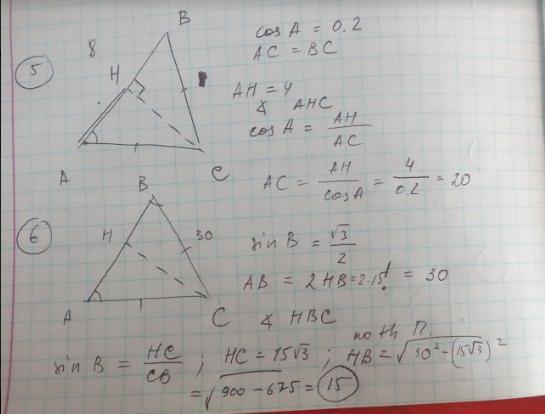 5
B
8
H
A
C
cos A = 0.2
AC = BC
AH = 4
∡ AHC
cos A = AH / AC
AC = AH / cos A = 4 / 0.2 = 20
6
B
H
30
A
C
sin B = √3 / 2
AB = 2HB = 2·15 = 30
∡ HBC
по th П.
sin B = HC / CB ; HC = 15√3 ; HB = √(30² - (15√3)²)
= √(900 - 675) = 15